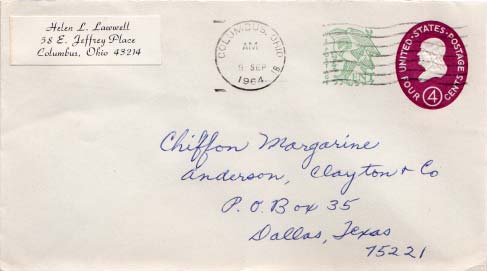 Helen L. Lawwell
58 E. Jeffrey Place
Columbus, Ohio 43214
COLUMBUS, OHIO
AM
9 SEP
1964
UNITED STATES POSTAGE
4
FOUR CENTS
Chiffon Margarine
Anderson, Clayton & Co
P.O. Box 35
Dallas, Texas
75221